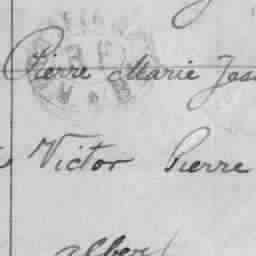 Pierre Marie
Victor Pierre
Albert